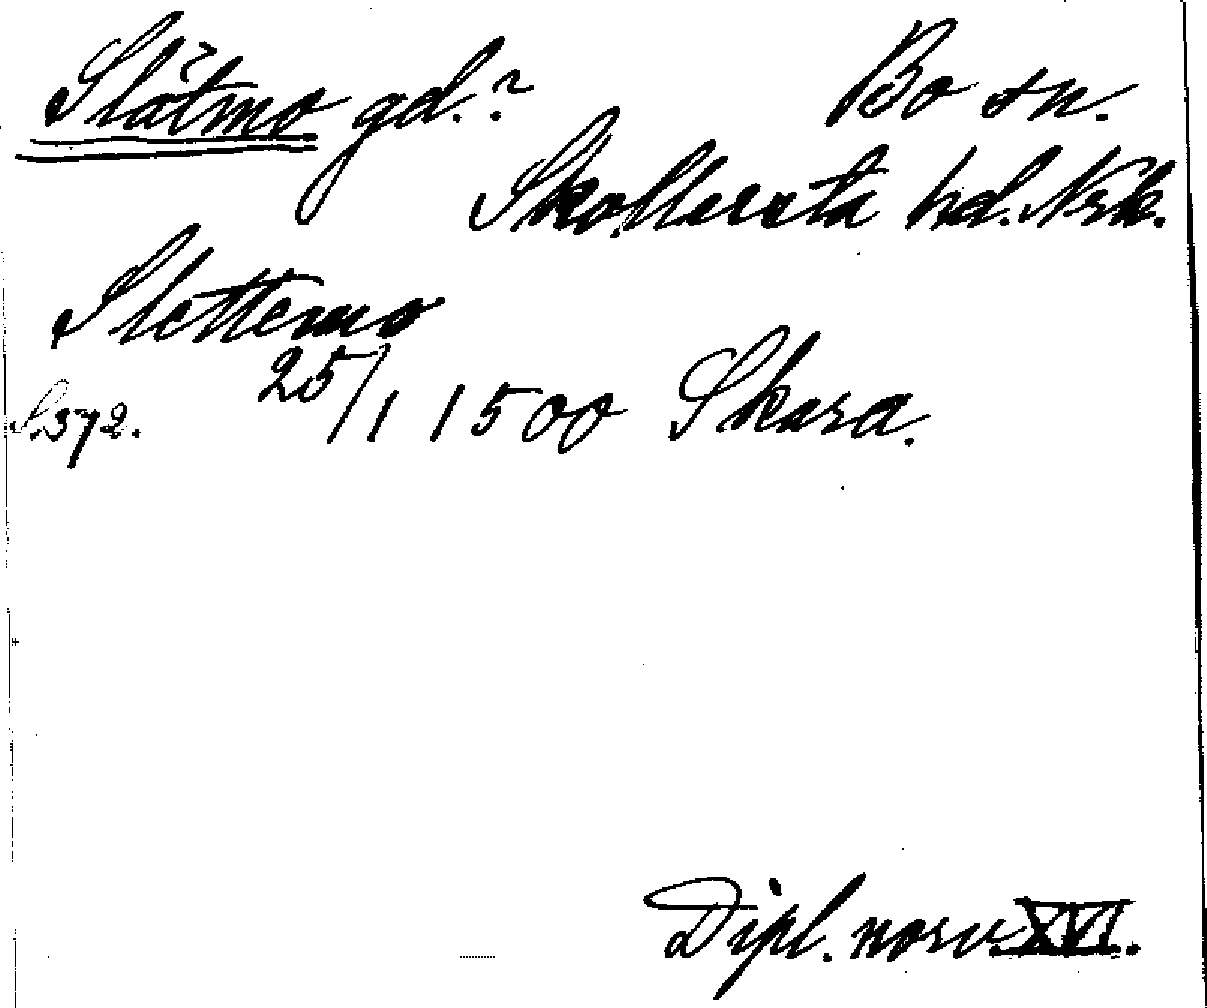 Slätmo gd.? Bo sn.
Skollersta hd. Nrk.
Slettemo
S. 372. 25/1 1500 Skara.
Dipl. norv. XVI.